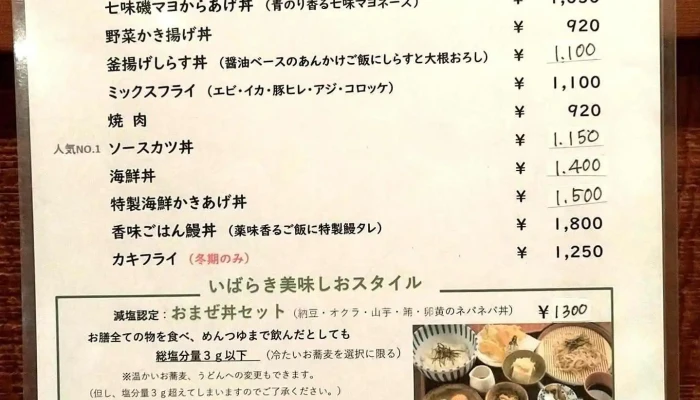 七味磯マヨからあげ丼 （青のり香る七味マヨネーズ） ￥ 1,050
野菜かき揚げ丼 ￥ 920
釜揚げしらす丼 （醤油ベースのあんかけご飯にしらすと大根おろし） ￥ 1.100
ミックスフライ （エビ・イカ・豚ヒレ・アジ・コロッケ） ￥ 1,100
焼 肉 ￥ 920
人気NO.1 ソースカツ丼 ￥ 1.150
海鮮丼 ￥ 1.400
特製海鮮かきあげ丼 ￥ 1.500
香味ごはん鰻丼 （薬味香るご飯に特製鰻タレ） ￥ 1,800
カキフライ （冬期のみ） ￥ 1,250
いばらき美味しおスタイル
減塩認定：おまぜ丼セット（納豆・オクラ・山芋・鮪・卵黄のネバネバ丼） ￥1300
お膳全ての物を食べ、めんつゆまで飲んだとしても
総塩分量３ｇ以下 （冷たいお蕎麦を選択に限る）
※温かいお蕎麦、うどんへの変更もできます。
（但し、塩分量３ｇ超えてしまいますのでご了承ください。）